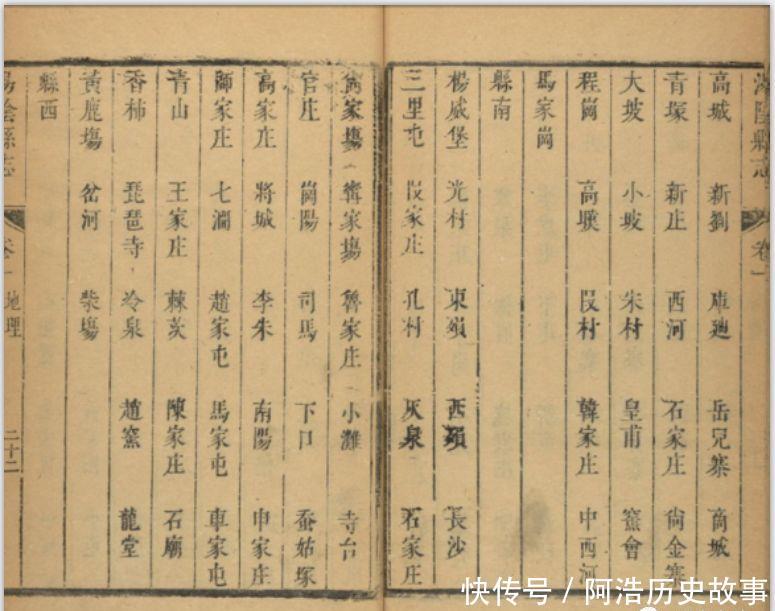 湯陰縣志
卷一
高城 新劉 庫廸 岳兒寨 商城
青塚 新庄 西河 石家庄 尙金寨
大坡 小坡 朱村 皇甫 窰會
程崗 高 叚村 韓家庄 中西河
馬家崗
縣南
楊威堡 光村 東嶺 西嶺 長沙
三里屯 叚家庄 孔村 灰泉 石家庄
家塲 家塲 魯家庄 小灘 寺台
官庄 崗陽 司馬 下口 蚕姑塚
高家庄 將城 李朱 南陽 申家庄
師家庄 七澗 趙家屯 馬家屯 車家屯
青山 王家庄 棘茨 陳家庄 石廟
香柿 琵琶寺 冷泉 趙窰 龍堂
黃鹿塲 岔河 柴塲
縣西
湯陰縣志
卷一 地理 二十二
快传号/阿浩历史故事